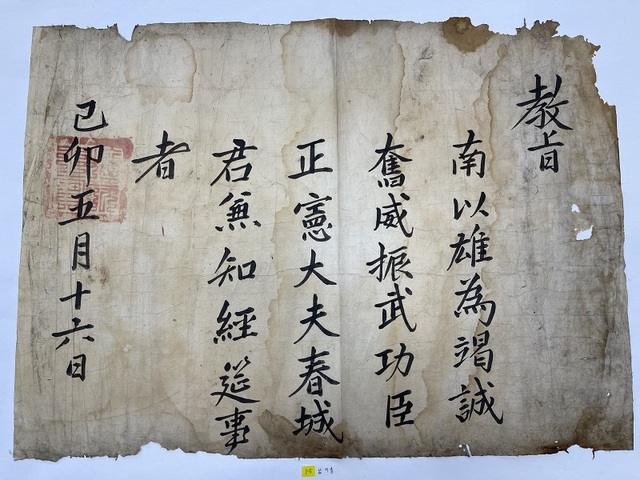 教旨
南以雄為竭誠
奮威振武功臣
正憲大夫春城
君兼知經筵事
者
己卯五月十六日